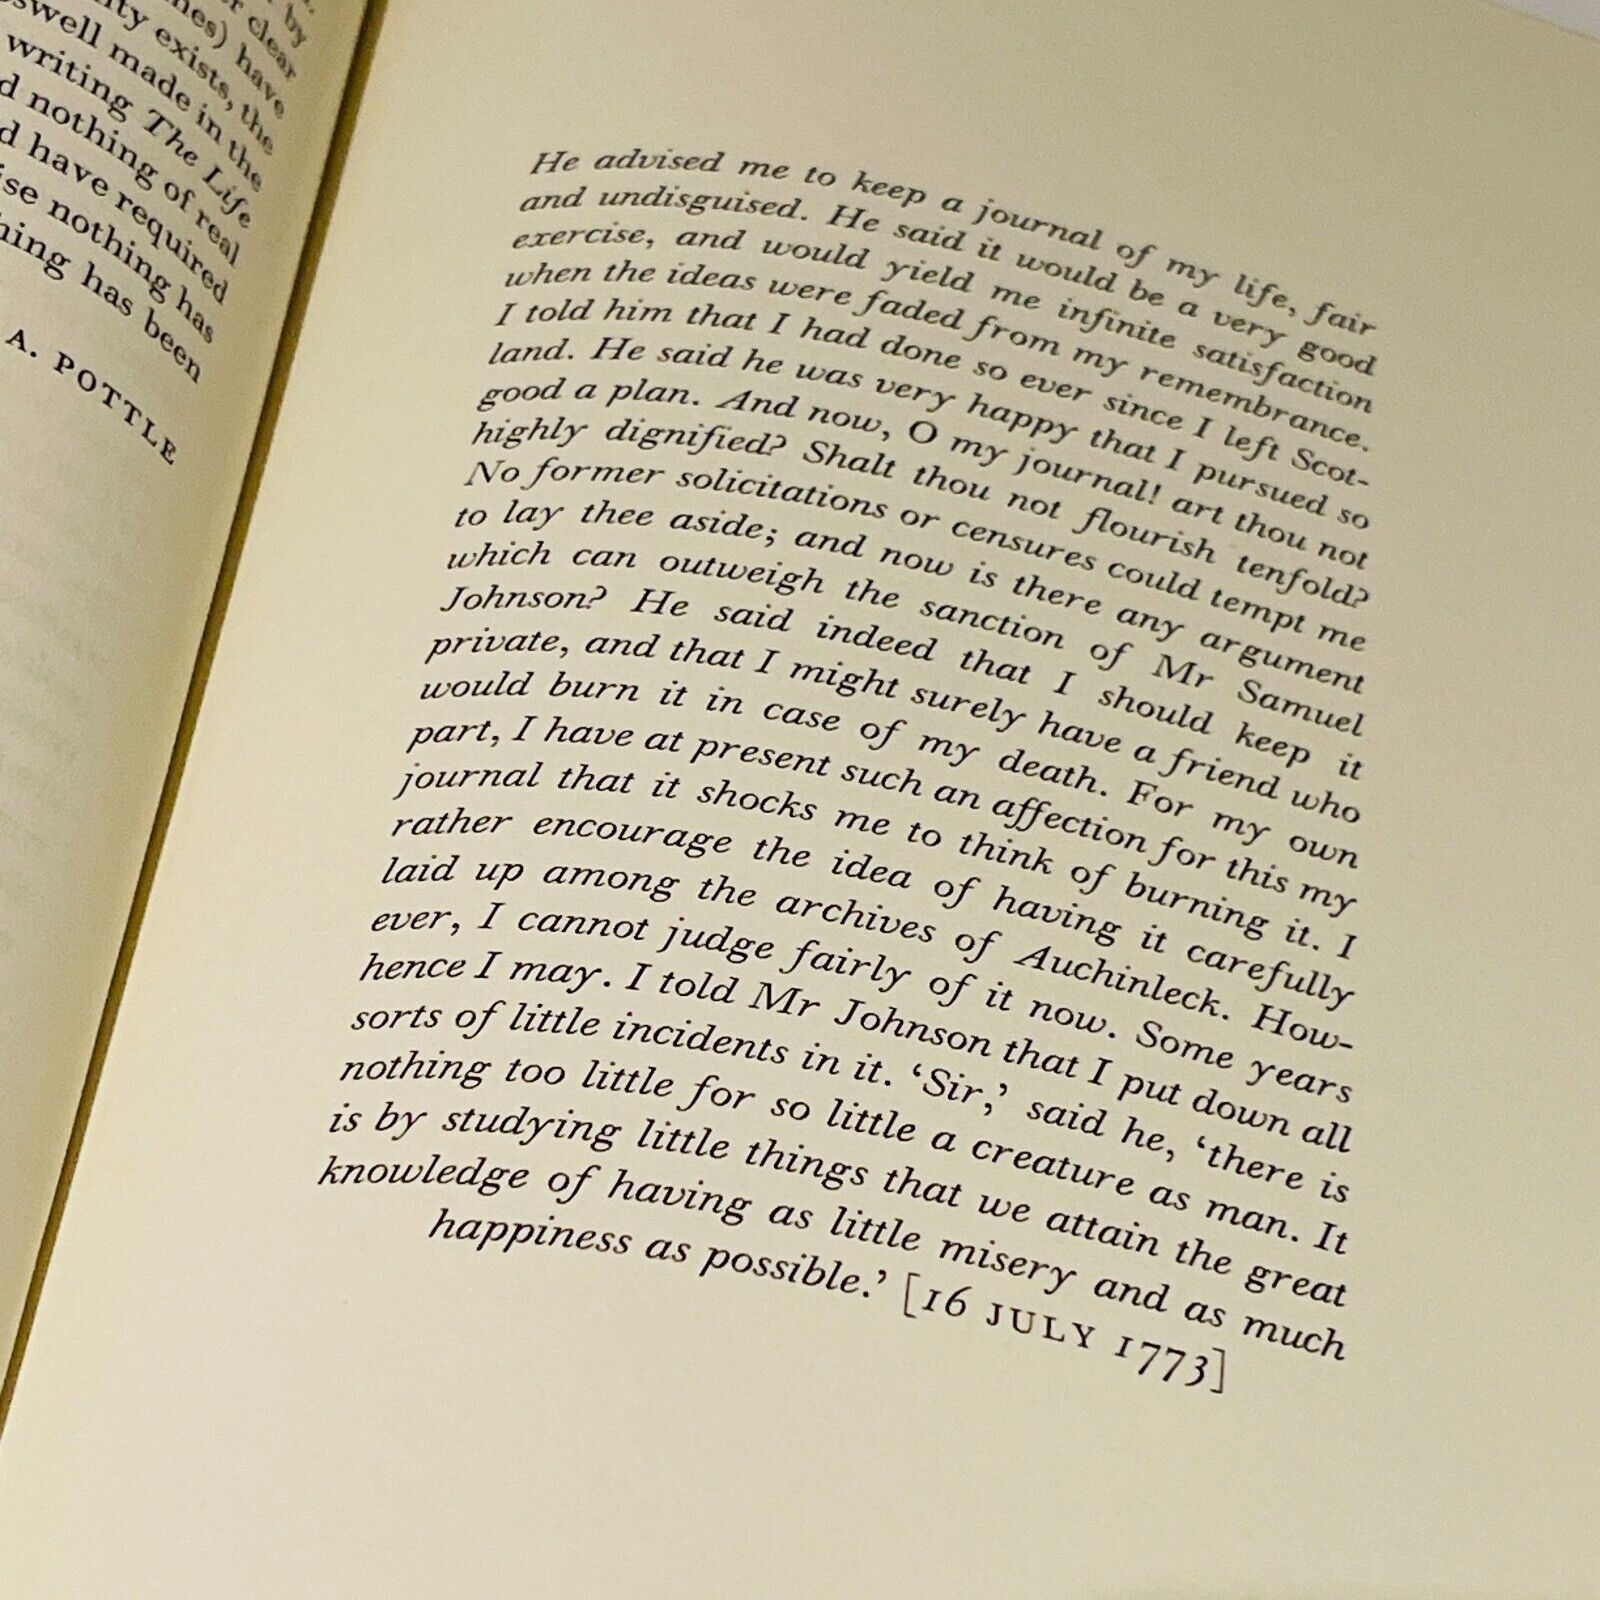 by
clear
nes) have
ty exists, the
swell made in the
writing The Life
d nothing of real
d have required
ise nothing has
hing has been
A. POTTLE
He advised me to keep a journal of my life, fair
and undisguised. He said it would be a very good
exercise, and would yield me infinite satisfaction
when the ideas were faded from my remembrance.
I told him that I had done so ever since I left Scot-
land. He said he was very happy that I pursued so
good a plan. And now, O my journal! art thou not
highly dignified? Shalt thou not flourish tenfold?
No former solicitations or censures could tempt me
to lay thee aside; and now is there any argument
which can outweigh the sanction of Mr Samuel
Johnson? He said indeed that I should keep it
private, and that I might surely have a friend who
would burn it in case of my death. For my own
part, I have at present such an affection for this my
journal that it shocks me to think of burning it. I
rather encourage the idea of having it carefully
laid up among the archives of Auchinleck. How-
ever, I cannot judge fairly of it now. Some years
hence I may. I told Mr Johnson that I put down all
sorts of little incidents in it. ‘Sir,’ said he, ‘there is
nothing too little for so little a creature as man. It
is by studying little things that we attain the great
knowledge of having as little misery and as much
happiness as possible.’ [16 JULY 1773]